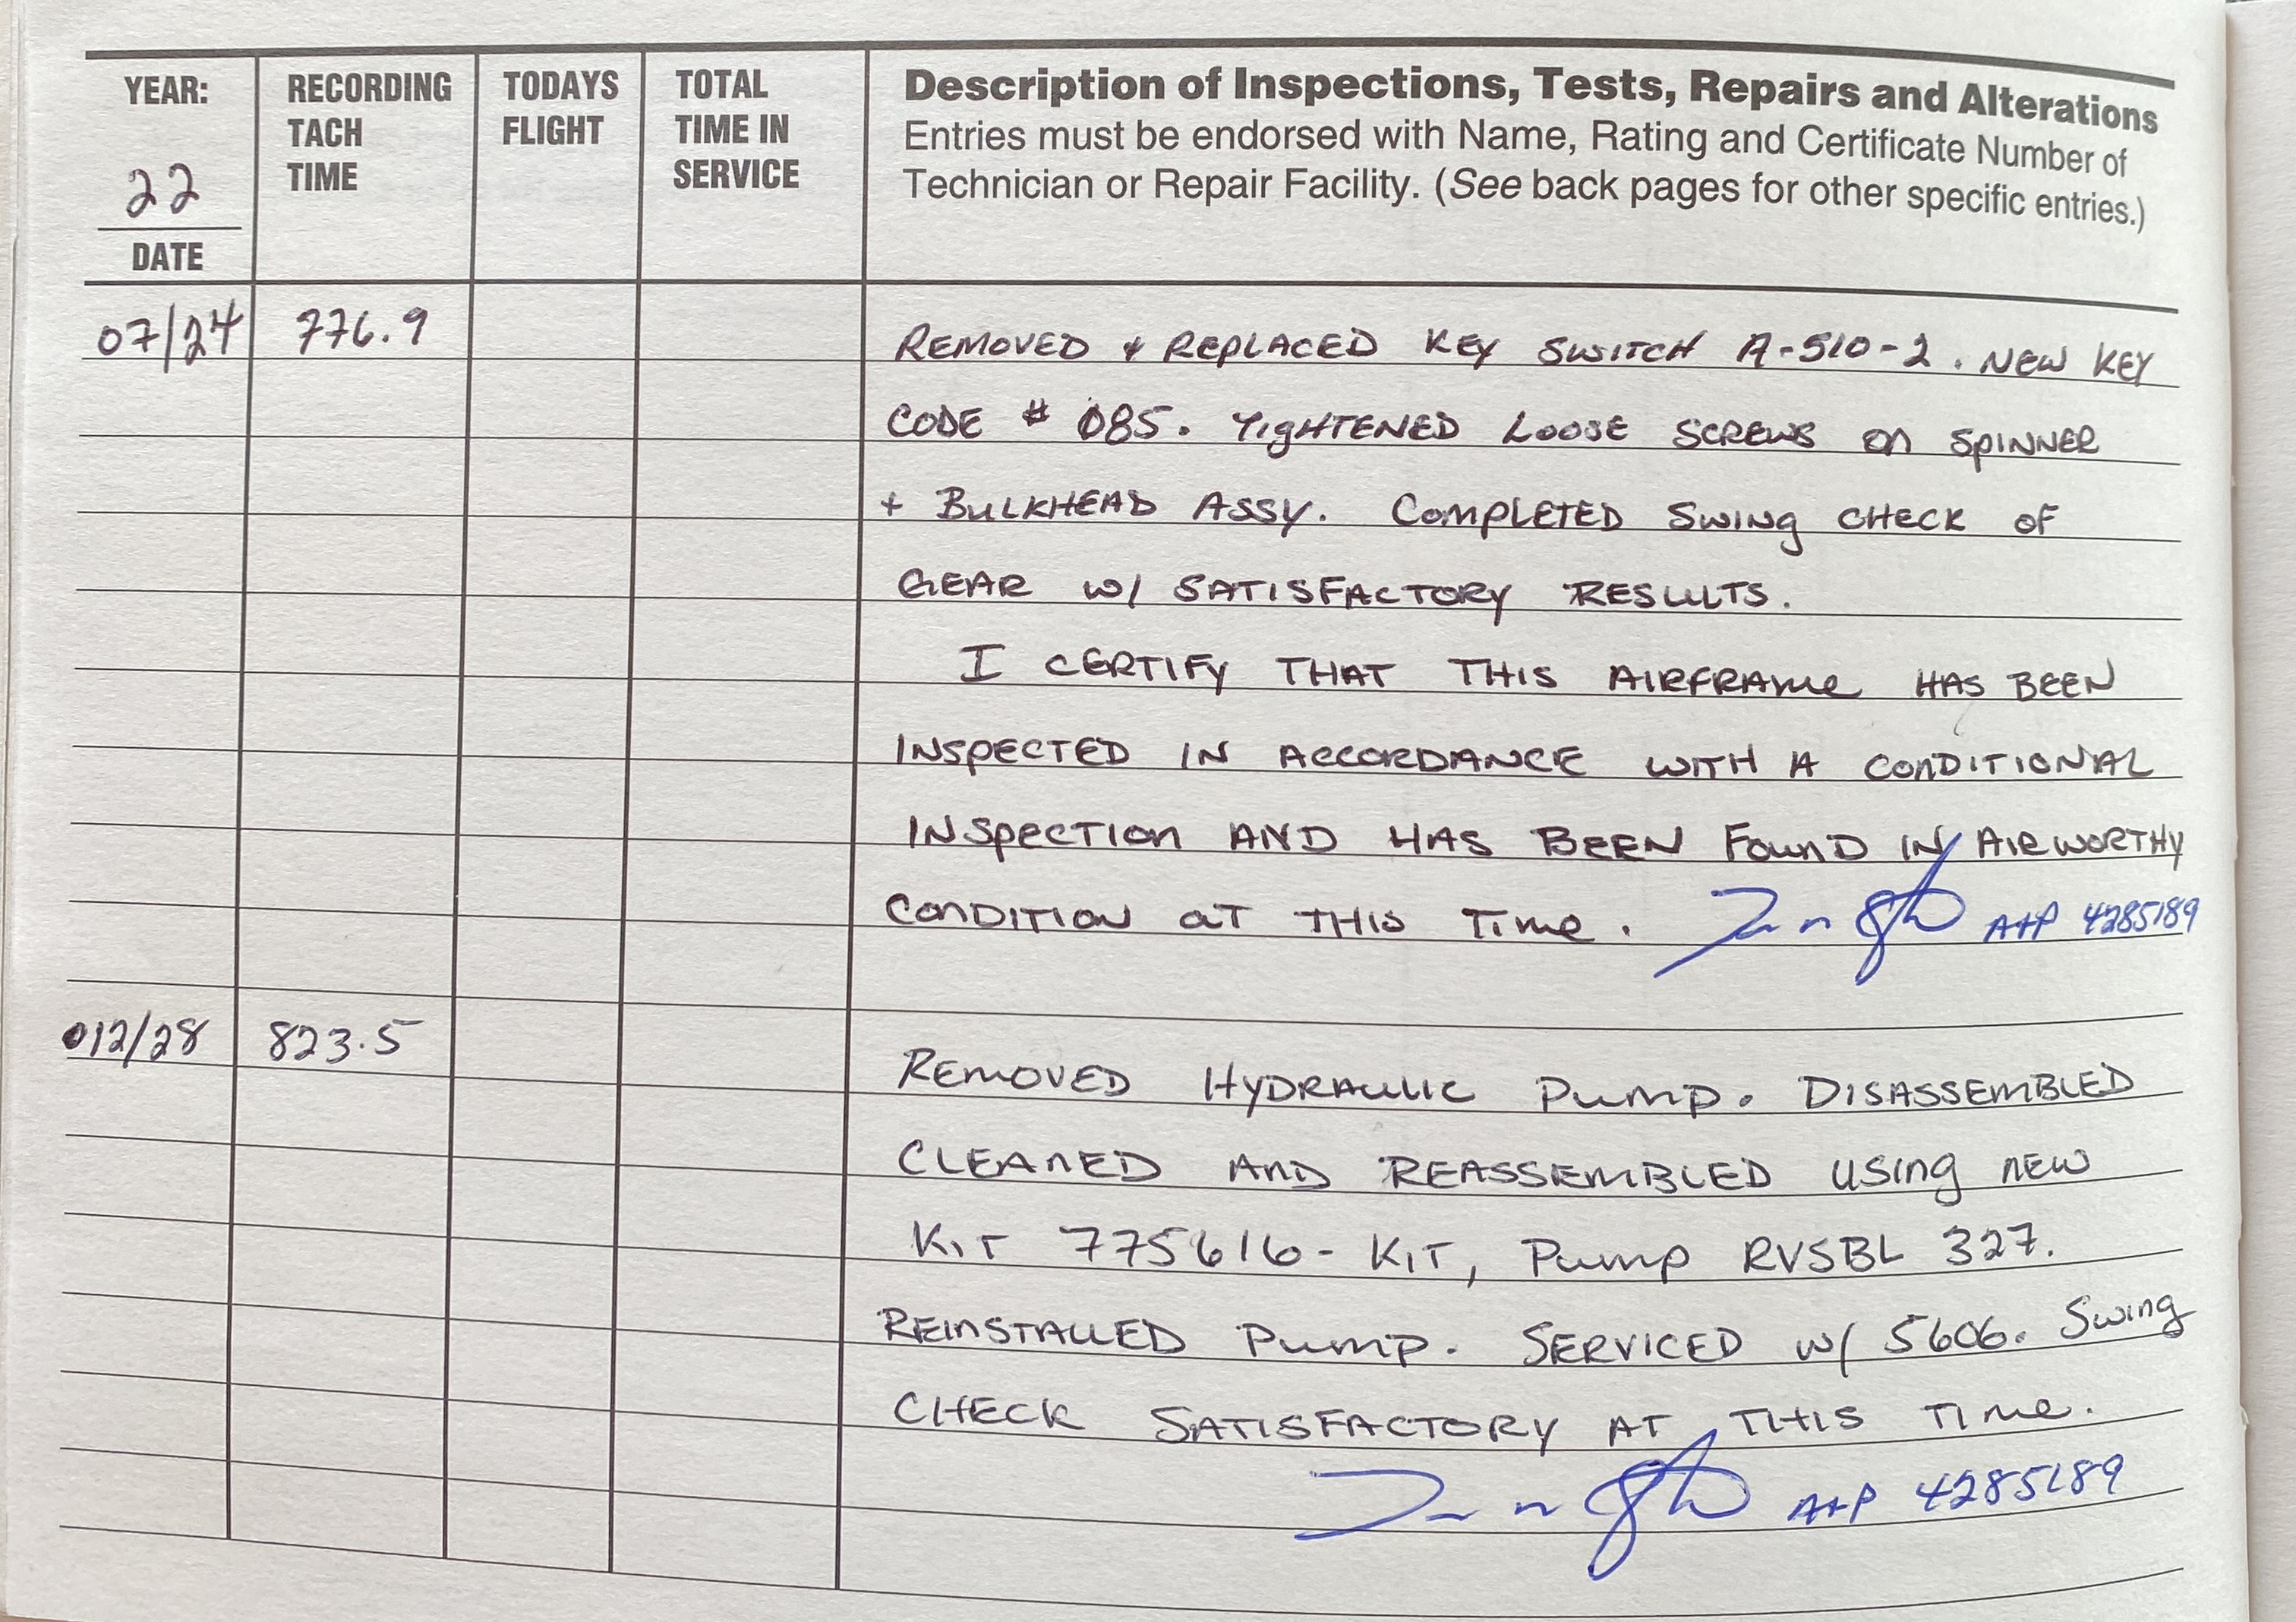 YEAR:
22
DATE
RECORDING
TACH
TIME
TODAYS
FLIGHT
TOTAL
TIME IN
SERVICE
Description of Inspections, Tests, Repairs and Alterations
Entries must be endorsed with Name, Rating and Certificate Number of
Technician or Repair Facility. (See back pages for other specific entries.)
07/24 776.9 REMOVED + REPLACED KEY SWITCH A-510-2. NEW KEY
CODE # 085. TIGHTENED LOOSE SCREWS ON SPINNER
+ BULKHEAD ASSY. COMPLETED SWING CHECK OF
GEAR W/ SATISFACTORY RESULTS.
I CERTIFY THAT THIS AIRFRAME HAS BEEN
INSPECTED IN ACCORDANCE WITH A CONDITIONAL
INSPECTION AND HAS BEEN FOUND IN AIRWORTHY
CONDITION AT THIS TIME. A+P 4285189
12/28 823.5 REMOVED HYDRAULIC PUMP. DISASSEMBLED
CLEANED AND REASSEMBLED USING NEW
KIT 775616-KIT, PUMP RVSBL 327.
REINSTALLED PUMP. SERVICED W/ 5606. SWING
CHECK SATISFACTORY AT THIS TIME.
A+P 4285189